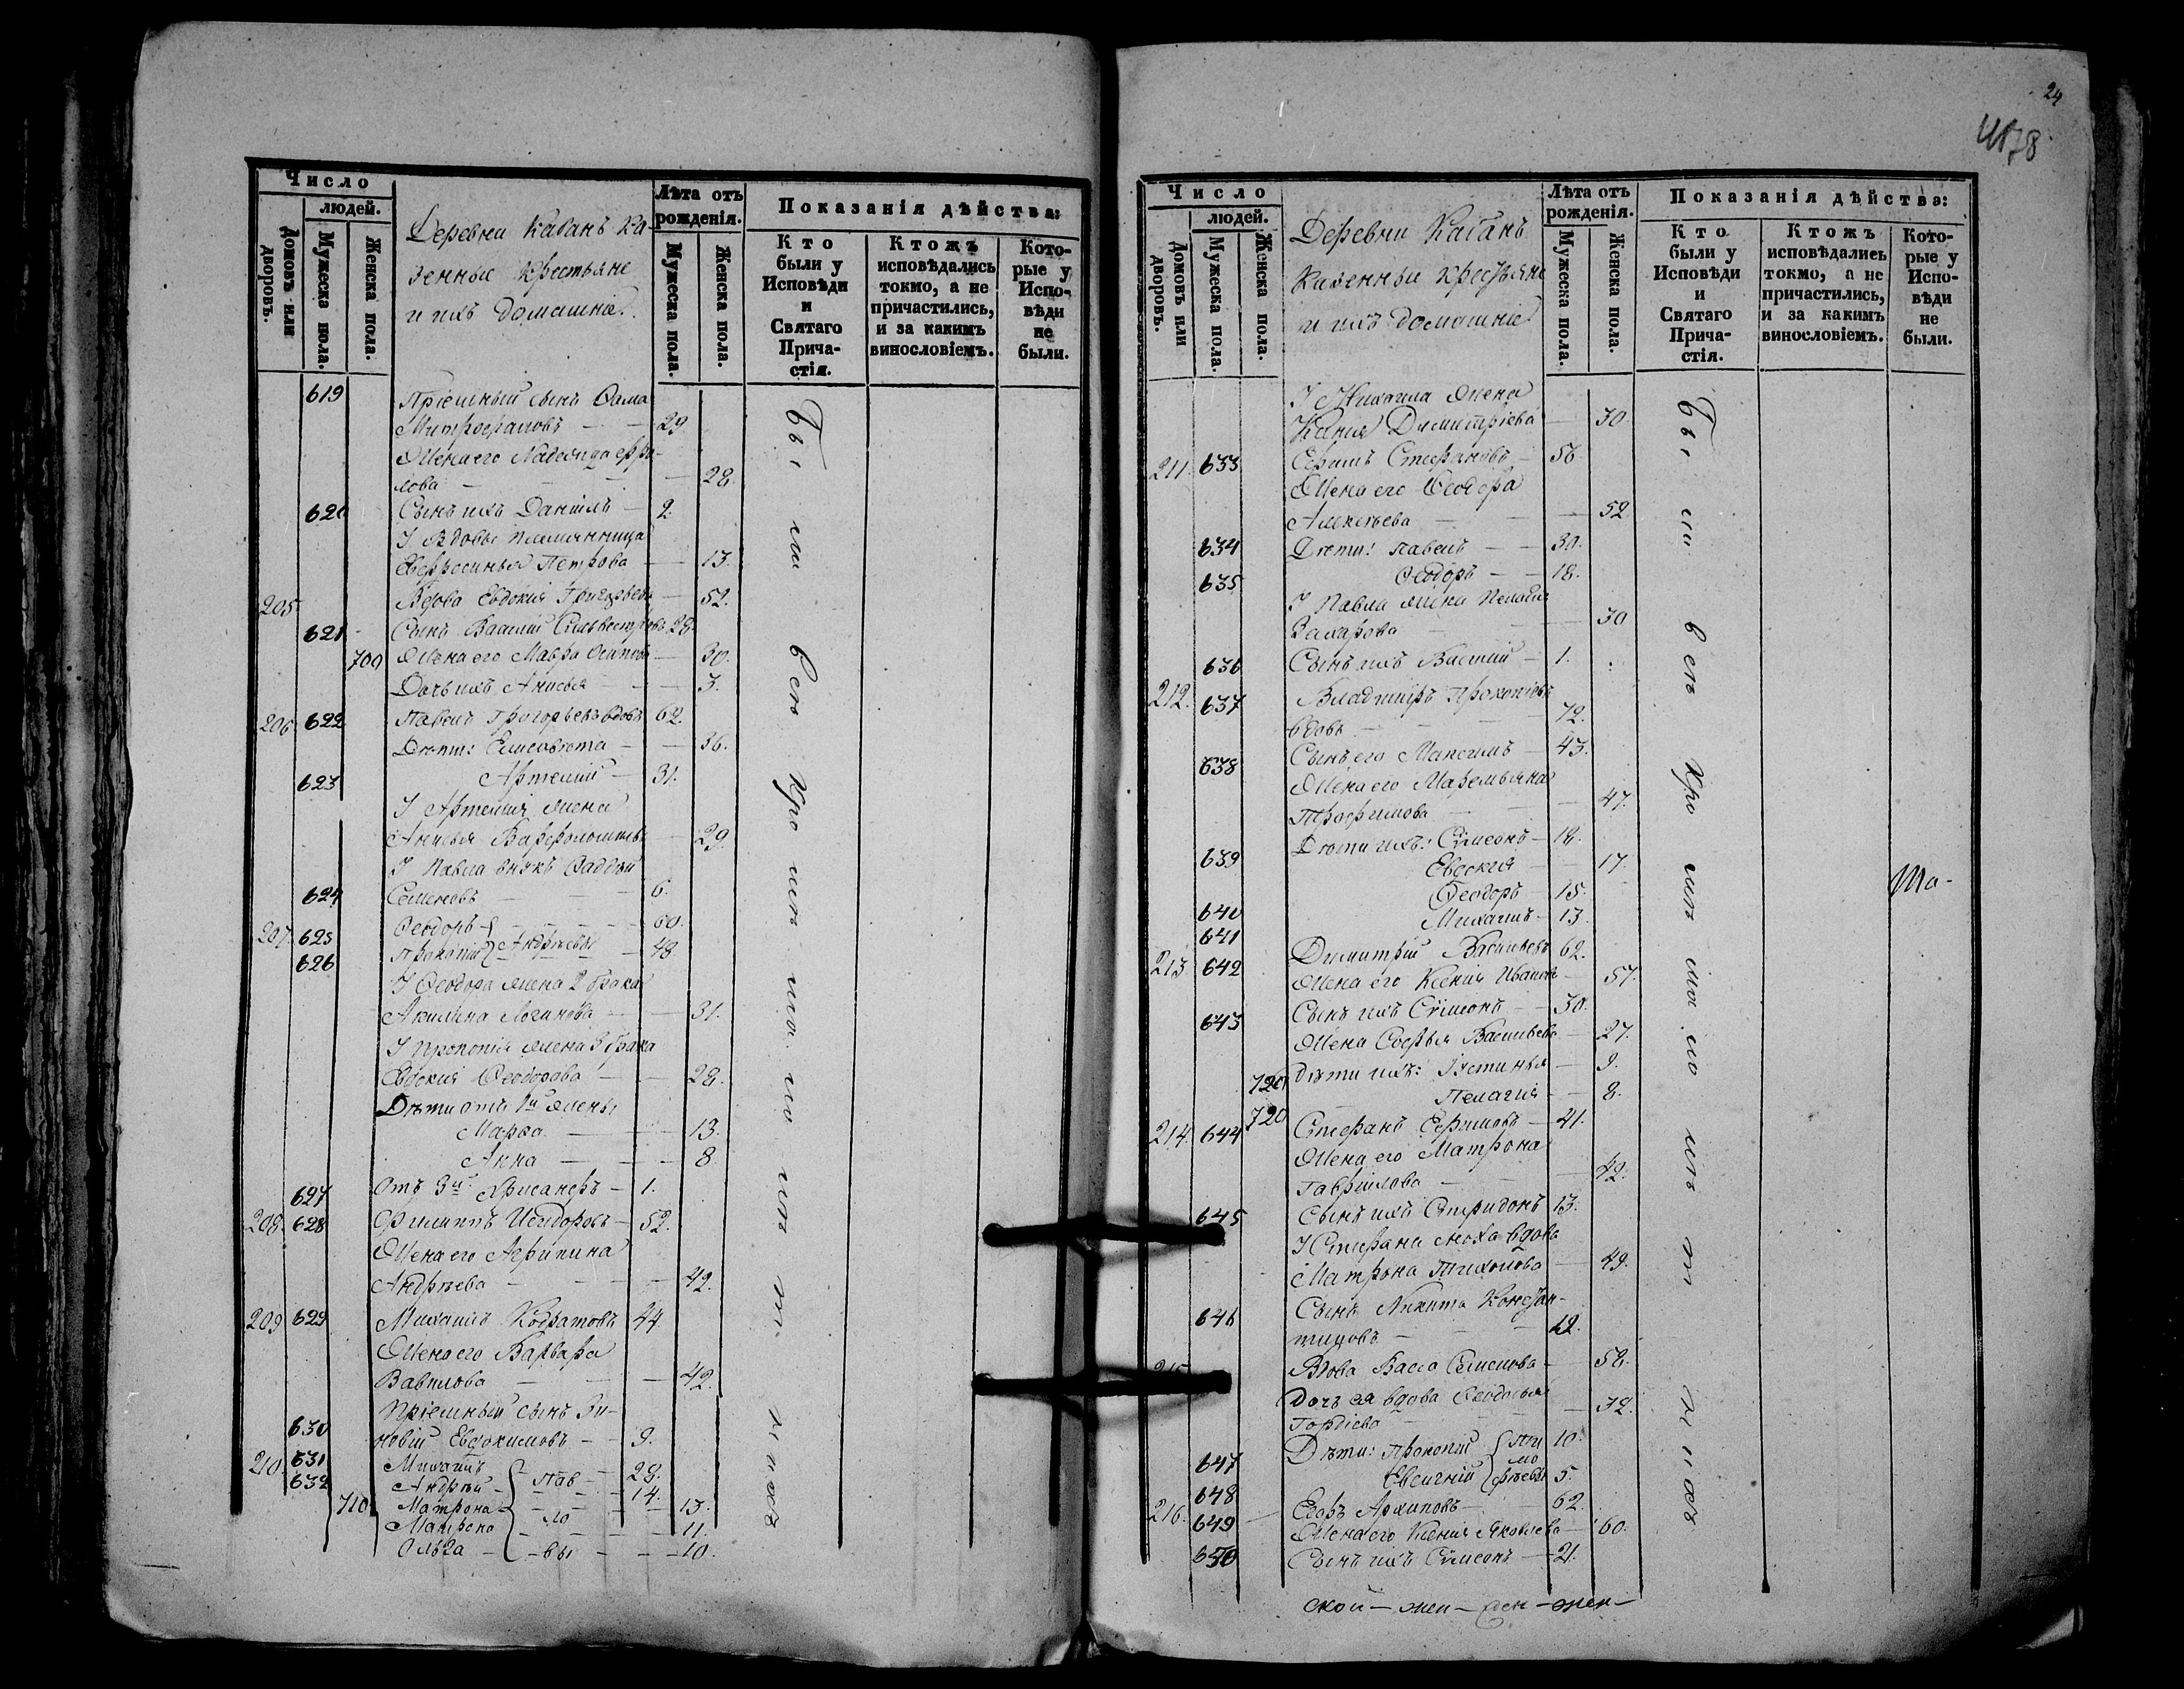 Число
людей.
Домовъ или дворовъ.
Мужеска пола.
Женска пола.
Деревни Кабанъ ка-
зенные крестьяне
и ихъ домашніе.
Лѣта отъ
рожденія.
Мужеска пола.
Женска пола.
Показанія дѣйства:
Кто
были у
Исповѣди
и
Святаго
Прича-
стія.
Ктожъ
исповѣдались
токмо, а не
причастились,
и за какимъ
винословіемъ.
Кото-
рые у
Испо-
вѣди
не
были.
619 Пріемный сынъ
Митрофановъ 29
Жена его
лова 28
620 Сынъ ихъ Даніилъ 2.
У вдовы племянница
Евфросинья Петрова 13.
205 Вдова Евдокія Григорьева 52.
621 Сынъ Василій Сильвестровъ 28.
700 Жена его Мавра Осипова 30.
Дочь ихъ Анисья 3.
206 622 Павелъ Григорьевъ вдовъ 62.
Дѣти: Елисавета 36.
623 Артемій 31.
У Артемія жена
Анисья Варфоломѣева 29
У Павла внукъ Фаддей
624 Семеновъ 6.
207 625 Феодоръ 60.
626 Прокопій Андрѣевы 48
У Феодора жена 2 брака
Акилина Логинова 31.
У Прокопія жена 3 брака
Евдокія Феодорова 28.
Дѣти отъ жены
Марѳа 13.
Анна 8.
627 Отъ 3й Хрисанфъ 1.
208 628 Филиппъ Исидоровъ 52.
Жена его Агрипина
Андрѣева 42.
209 629 Михаилъ Кодратовъ 44
Жена его Варвара
Вавилова 42.
Пріемный сынъ Зи-
630 новій Евдокимовъ 9.
210 631 Михаилъ Пав 28.
632 Андрѣй 14.
710 Матрона ло 13.
Матрона 11.
Ольга вы 10.
Бы ли всѣ
24
4178
Число
людей.
Домовъ или дворовъ.
Мужеска пола.
Женска пола.
Деревни Кабанъ
казенные крестьяне
и ихъ домашніе
Лѣта отъ
рожденія.
Мужеска пола.
Женска пола.
Показанія дѣйства:
Кто
были у
Исповѣди
и
Святаго
Прича-
стія.
Ктожъ
исповѣдались
токмо, а не
причастились,
и за какимъ
винословіемъ.
Кото-
рые у
Испо-
вѣди
не
были.
У Михаила жена
Ксенія Димитріева 30.
211. 633 Ефимъ Стефановъ 56
Жена его Феодора
Алексѣева 52
634 Дѣти: Павелъ 30.
635 Феодоръ 18.
У Павла жена Пелагія
Захарова 30
636 Сынъ ихъ Василій 1.
212. 637 Владиміръ Прокопіевъ
вдовъ 72.
638 Сынъ его Максимъ 43.
Жена его Маремьяна
Трофимова 47.
639 Дѣти ихъ: Сѵмеонъ 18.
Евдокія 17.
640 Феодоръ 15.
641 Михаилъ 13.
213 642 Димитрій Васильевъ 62.
Жена его Ксенія Иванова 57.
643 Сынъ ихъ Сѵмеонъ 30.
Жена Софья Васильева 27.
720 Дѣти ихъ: Іустинья 9.
720 Пелагія 8.
214. 644 Стефанъ Ефимовъ 41.
Жена его Матрона
Гаврилова 42.
645 Сынъ ихъ Спиридонъ 13.
У Стефана сноха вдова
Матрона Тихонова 49.
646 Сынъ Никита Констан-
тиновъ 12.
215 Вдова Васса Семенова 58.
Дочь ея вдова Феодосья
Гордіева 32.
647 Дѣти: Прокопій Ти 10.
мо
648 Евсигній фѣевы 5.
216. 649 Егоръ Архиповъ 62.
Жена его Ксенія Яковлева 60.
650 Сынъ ихъ Сѵмеонъ 21.
Бы ли всѣ